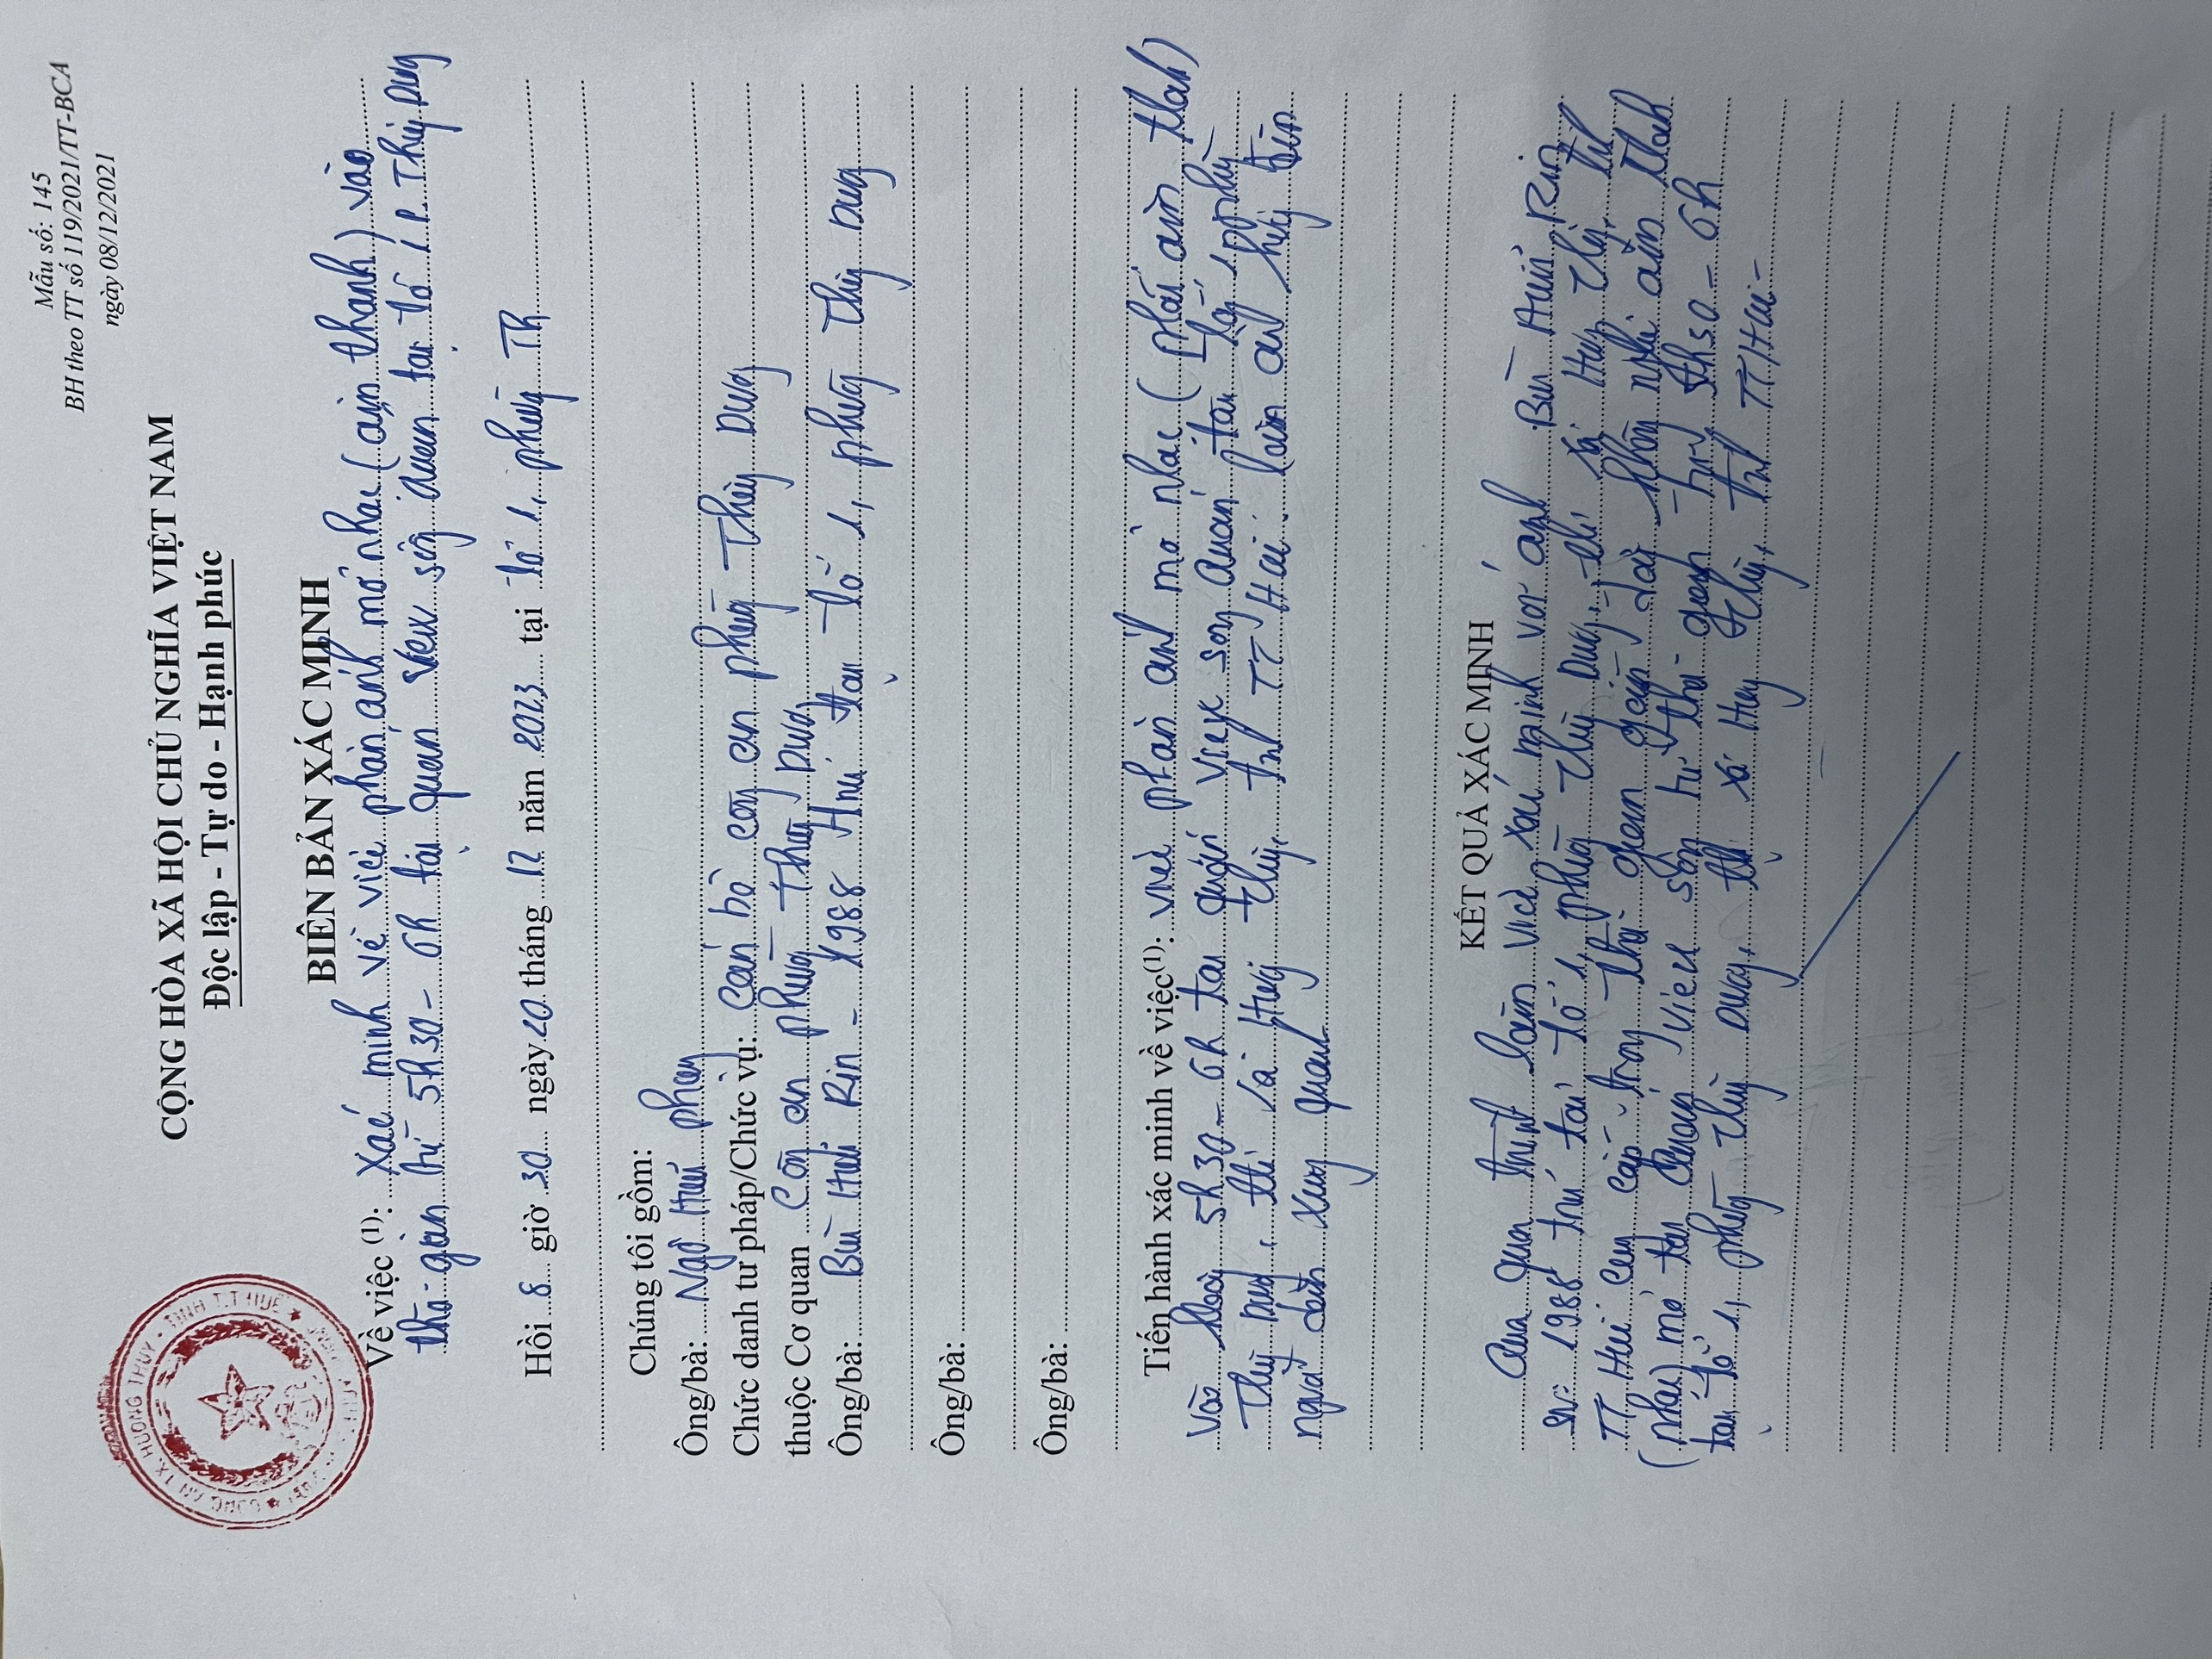 Mẫu số: 145
BH theo TT số 119/2021/TT-BCA
ngày 08/12/2021
CỘNG HÒA XÃ HỘI CHỦ NGHĨA VIỆT NAM
Độc lập - Tự do - Hạnh phúc
CÔNG AN TX. HƯƠNG THỦY - TỈNH T.T HUẾ
BIÊN BẢN XÁC MINH
Về việc (1): Xác minh về việc phản ánh mở nhạc (âm thanh) vào
thời gian từ 5h30 - 6h tại quán view sông quen tại tổ 1 P. Thủy Dương
Hồi 8 giờ 30 ngày 20 tháng 12 năm 2023 tại tổ 1, phường TD
Chúng tôi gồm:
Ông/bà: Ngô Hữu
Chức danh tư pháp/Chức vụ: Cán bộ công an phường Thủy Dương
thuộc Cơ quan Công an phường Thủy Dương
Ông/bà: Bùi Hữu Rin - 1988 Trú tại tổ 1, phường Thủy Dương
Ông/bà:
Ông/bà:
Tiến hành xác minh về việc(1): việc phản ánh mở nhạc (phát âm thanh)
Vào lúc 5h30 - 6h tại quán View sông quán tại tổ 1 phường
Thủy Dương, thị xã Hương Thủy, tỉnh TT Huế làm ảnh hưởng đến
người dân xung quanh
KẾT QUẢ XÁC MINH
Qua quá trình làm việc xác minh với anh Bùi Hữu Rin
sn: 1988 trú tại tổ 1, phường Thủy Dương, thị xã Hương Thủy, tỉnh
TT Huế cung cấp trong thời gian gần đây không nghe âm thanh
(nhạc) mở tại quán View sông từ thời gian từ 5h30 - 6h
tại tổ 1, phường Thủy Dương, thị xã Hương Thủy, tỉnh TT Huế.